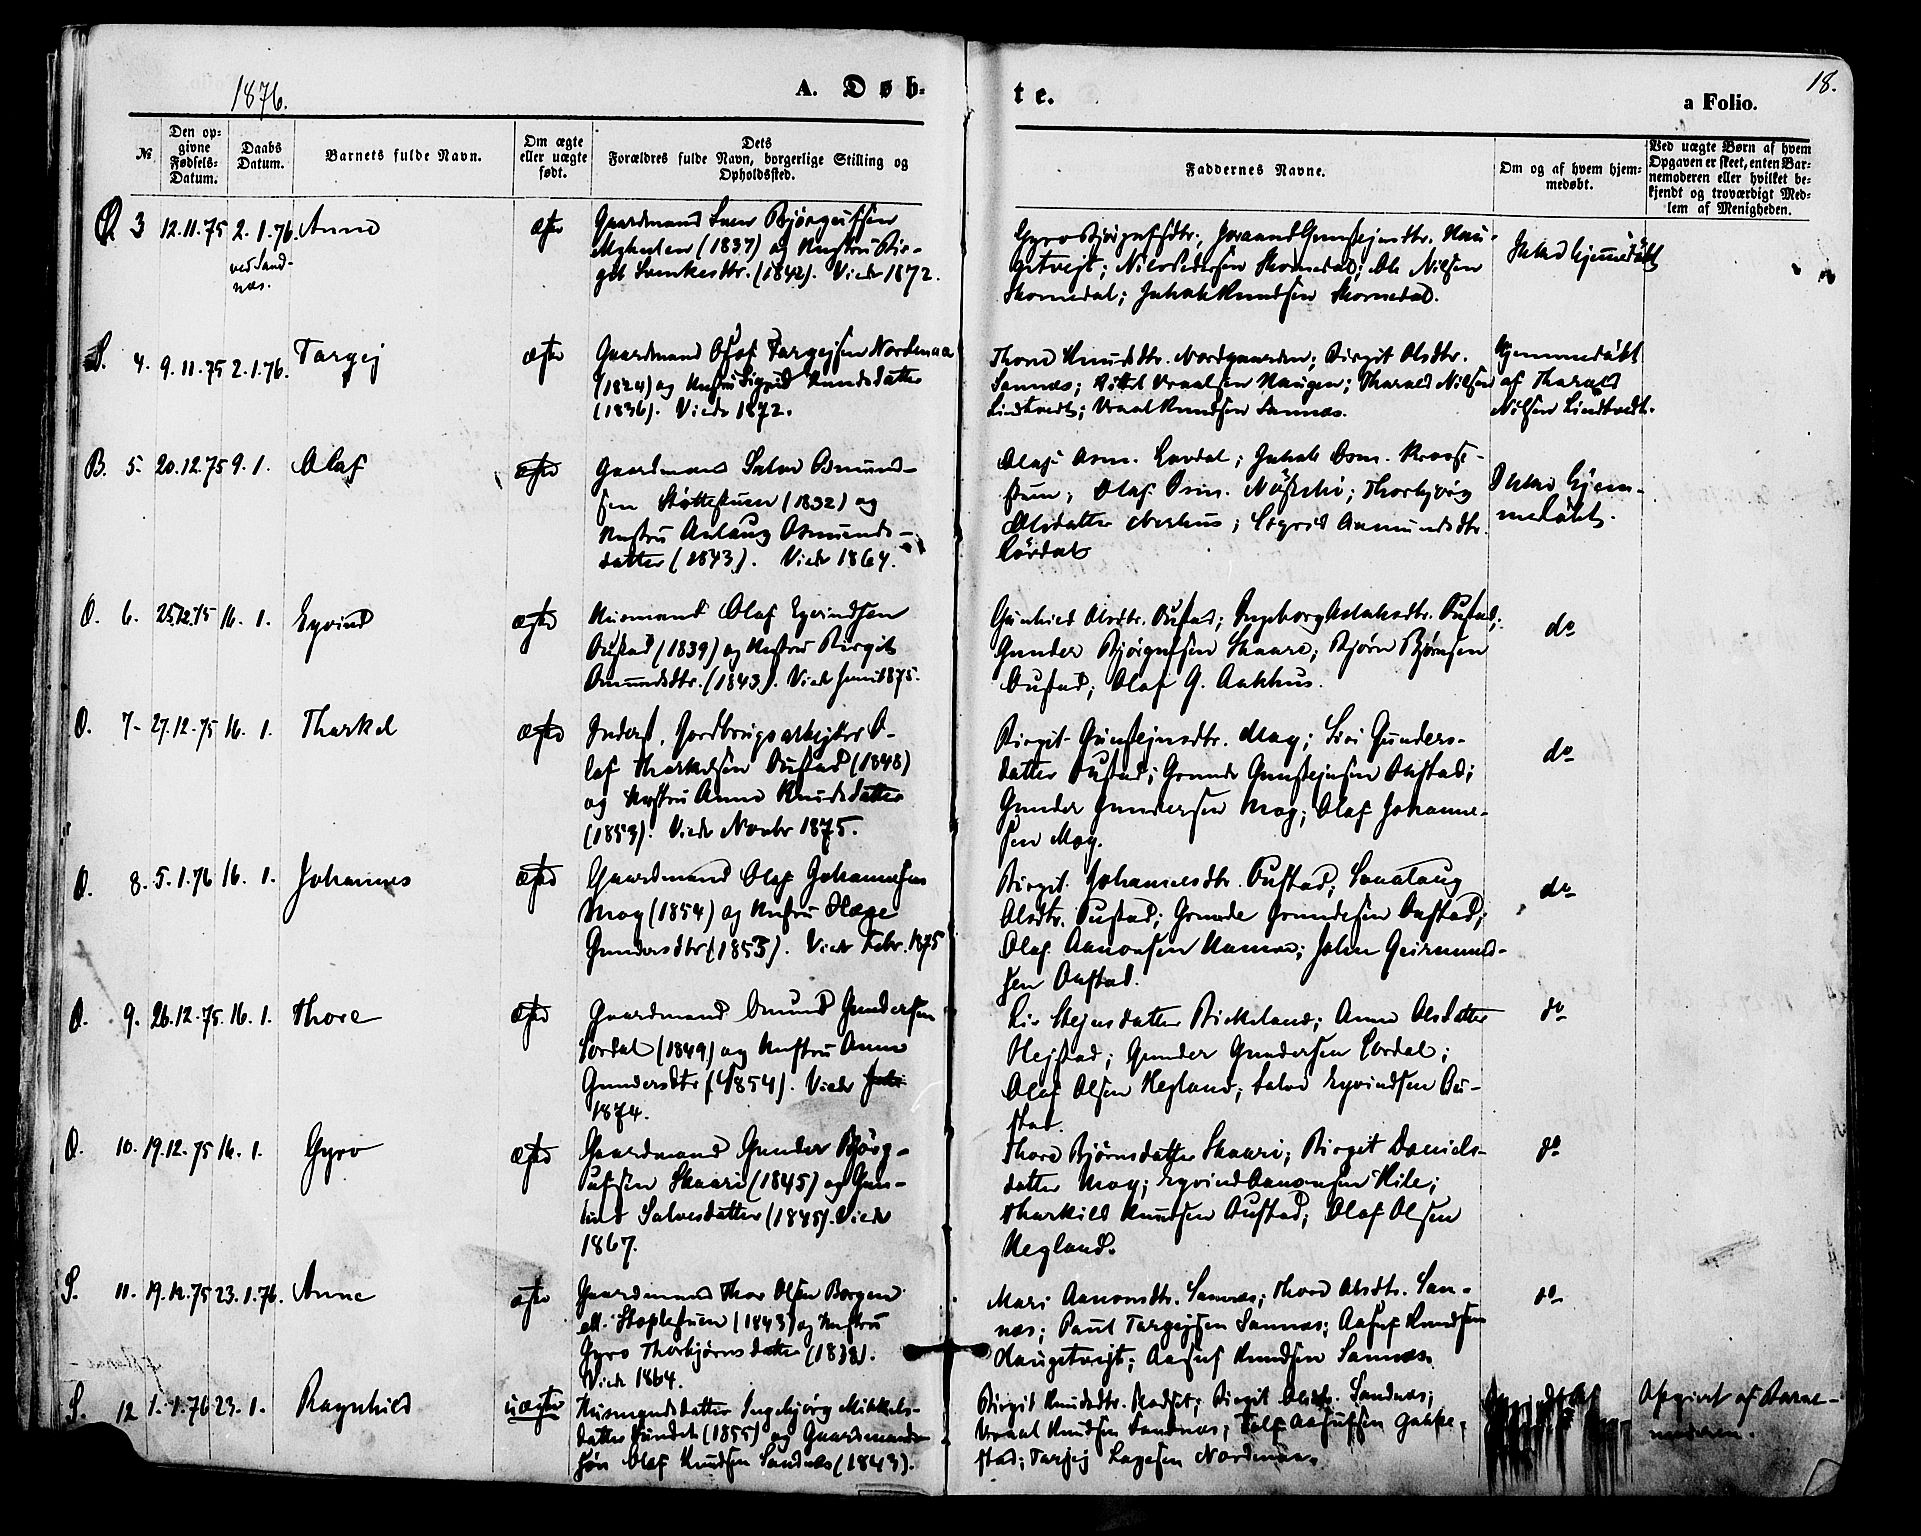 1876.
A. Døb-
te.
18.
a Folio.
№
Den op-
givne
Fødsels-
Datum.
Daabs
Datum.
Barnets fulde Navn.
Om ægte
eller uægte
født.
Dets
Forældres fulde Navn, borgerlige Stilling og
Opholdssted.
Faddernes Navne.
Om og af hvem hjem-
medøbt.
Ved uægte Børn af hvem
Opgaven er skeet, enten Bar-
nemoderen eller hvilket be-
kjendt og troværdigt Med-
lem af Menigheden.
3 12.11.75 2.1.76. Anne
ved Sand-
næs.
ægte
Gaardmand Sven Bjørgufsen
(1837) og Hustru Bir-
git (1842). Viede 1872.
Gyro Bjørgufsdtr.; Joraand Gunstejnsdtr. Hau-
getvejt; Nils Pedersen Skomedal; Ole Nilsen
Skomedal; Knudsen Skomedal.
Ikke hjemmedøbt
S. 4. 9.11.75 2.1.76. Targej
ægte
Gaardmand Olof Targejsen Nordenaa
(1824) og Hustru Sigrid Knudsdatter
(1836). Viede 1872.
Thone Knudsdtr. Nordgaarden; Birgit Olsdtr.
Sannæs; Kittel Vraalsen Haugen; Tharald Nilsen
Lindtvedt; Vraal Knudsen Sannæs.
Hjemmedøbt
af Tharald
Nilsen Lindtvedt.
B. 5. 20.12.75 9.1. Olaf
ægte
Gaardmand Salve Osmund-
sen Støttestuen (1832) og
Hustru Aslaug Osmunds-
datter (1843). Viede 1864.
Olaf Osm. Lordal; Osm.
Olaf Osm. Thorbjørg
Olsdatter Nerhus; Sigrid Aanmundsdtr.
Lördal
Ikke hjem-
medøbt.
O. 6. 25.12.75 16.1. Eyvind
ægte
Husmand Olaf Eyvindsen
Oustad (1839) og Hustru Birgit
Omundsdtr. (1843). Viede Juni 1875.
Gunhild Olsdtr. Oustad; Ingeborg Aslaksdtr. Oustad;
Gunder Bjørgufsen Skaare; Bjørn Bjørnsen
Oustad; Olaf G. Aakhus.
do
O. 7- 27.12.75 16.1. Tharkel
ægte
Inderst, Jordbrugsarbejder O-
laf Tharkelsen Oustad (1848)
og Hustru Anne Knudsdatter
(1853). Viede Novbr 1875.
Birgit Gunstejnsdtr. Moy; Siri Gunders-
datter Oustad; Grunde Gunstejnsen Oustad;
Gunder Gundersen Moy; Olaf Johanne-
sen Moy.
do
O. 8. 5.1.76 16.1. Johannes
ægte
Gaardmand Olaf Johannesen
Moy (1854) og Hustru Hæge
Gundersdtr (1853). Viede Febr. 1875
Birgit Johannesdtr. Oustad; Sønalaug
Olsdtr. Oustad; Grunde Grundesen Oustad;
Olaf Aanonsen John Geirmunds-
sen Oustad.
do
O. 9. 26.12.75. 16.1. Thore
ægte
Gaardmand Omund Gundersen
Lordal (1849) og Hustru Anne
Gundersdtr (1854). Viede
1874.
Liv Stejnsdatter Birkeland; Anne Olsdatter
Hejstad; Gunder Gundersen Lordal;
Olaf Olsen Hegland; Salve Eyvindsen Ou-
stad.
do
O. 10. 19.12.75 16.1. Gyro
ægte
Gaardmand Gunder Bjørg-
ufsen Skaare (1845) og Gun-
hild Salvesdatter (1845). Viede
1867.
Thore Bjørnsdatter Skaare; Birgit Daniels-
datter Moy; Eyvind Aanonsen Kile;
Tharkild Knudsen Oustad; Olaf Olsen
Hegland.
do
S. 11. 19.12.75 23.1.76. Anne
ægte
Gaardmand Thor Olsen Borgen
ell. Stoplestuen (1843) og Hustru
Gyro Thorbjørnsdatter (1838).
Viede 1864.
Mari Aanonsdtr. Sannæs; Thore Olsdtr. San-
næs; Paul Targejsen Sannæs; Aasuf Knudsen
Haugetvejt; Aasuf Knudsen Sannæs.
do
S. 12 1.1.76 23.1. Ragnhild
uægte
Husmandsdatter Ingebjørg Mikkels-
datter (1855) og Gaardmands-
søn Olaf Knudsen Sandnæs (1843).
Birgit Knudsdtr. Birgit Olsdtr. Sandnæs;
Vraal Knudsen Sandnæs; Aasufsen
stad; Tarjej Nordenaa.
Opgivet af Barne-
moderen.